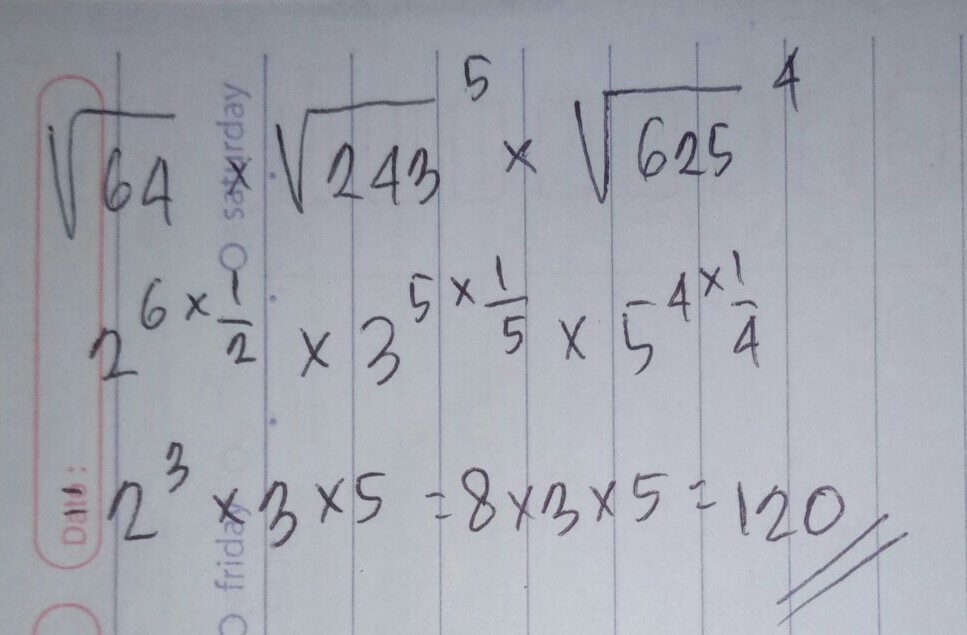 √64 × √243^5 × √625^4
2^(6 × 1/2) × 3^(5 × 1/5) × 5^(4 × 1/4)
= 2^3 × 3 × 5 = 8 × 3 × 5 = 120
Date :
saturday
friday